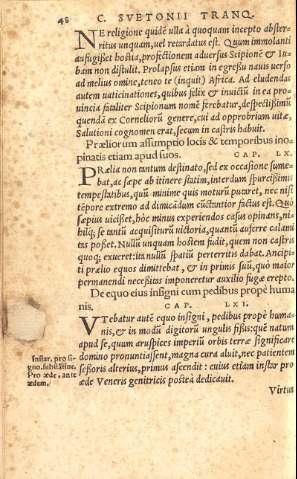 48 C. SVETONII TRANQ.
NE religione quidē ulla à quoquam incepto abster-
ritus unquam, uel retardatus est. Quum immolanti
aufugißet hostia, profectionem aduersus Scipionē & Iu-
bam non distulit. Prolapsus etiam in egreßu nauis uerso
ad melius omine, teneo te (inquit) Africa. Ad eludendas
autem uaticinationes, quibus felix & inuictū in ea pro-
uincia fataliter Scipionum nomē ferebatur, despectißimū
quendā ex Corneliorū genere, cui ad opprobrium uitæ,
Salutioni cognomen erat, secum in castris habuit.
Præliorum assumptio locis & temporibus ino-
pinatis etiam apud suos. CAP. LX.
PRælia non tantum destinato, sed ex occasione sume-
bat, ac sæpe ab itinere statim, interdum spurcißimis
tempestatibus, quū minime quis moturū putaret, nec nisi
tēpore extremo ad dimicādum cūctantior factus est. Quo
sæpius uicißet, hoc minus experiendos casus opinans, ni-
hilq; se tantū acquisiturū uictoria, quantū auferre calami
tas poßet. Nullū unquam hostem fudit, quem non castris
quoq; exueret: ita nullū spatiū perterritis dabat. Ancipi-
ti prælio equos dimittebat, & in primis suū, quò maior
permanendi necessitas imponeretur auxilio fugæ erepto.
De equo eius insigni cum pedibus propè huma
nis. CAP. LXI.
VTebatur autē equo insigni, pedibus propè huma-
nis, & in modū digitorū ungulis fißis: quē natum
apud se, quum aruspices imperiū orbis terræ significare
domino pronuntiaßent, magna cura aluit, nec patientem
seßoris alterius, primus ascendit: cuius etiam instar pro
æde Veneris genitricis posteà dedicauit.
Instar, pro si-
gno,
Pro æde, ante
ædem.
Virtus